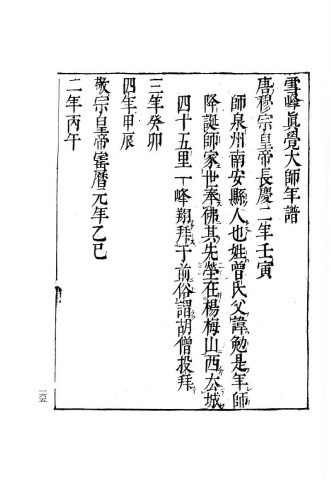 雪峰眞覺大師年譜
唐穆宗皇帝長慶二年壬寅
師泉州南安縣人也姓曾氏父諱勉是年師
降誕師家世奉佛其先塋在楊梅山西去城
四十五里一峰翔拜于前俗謂胡僧投拜
三年癸卯
四年甲辰
敬宗皇帝寳曆元年乙巳
二年丙午